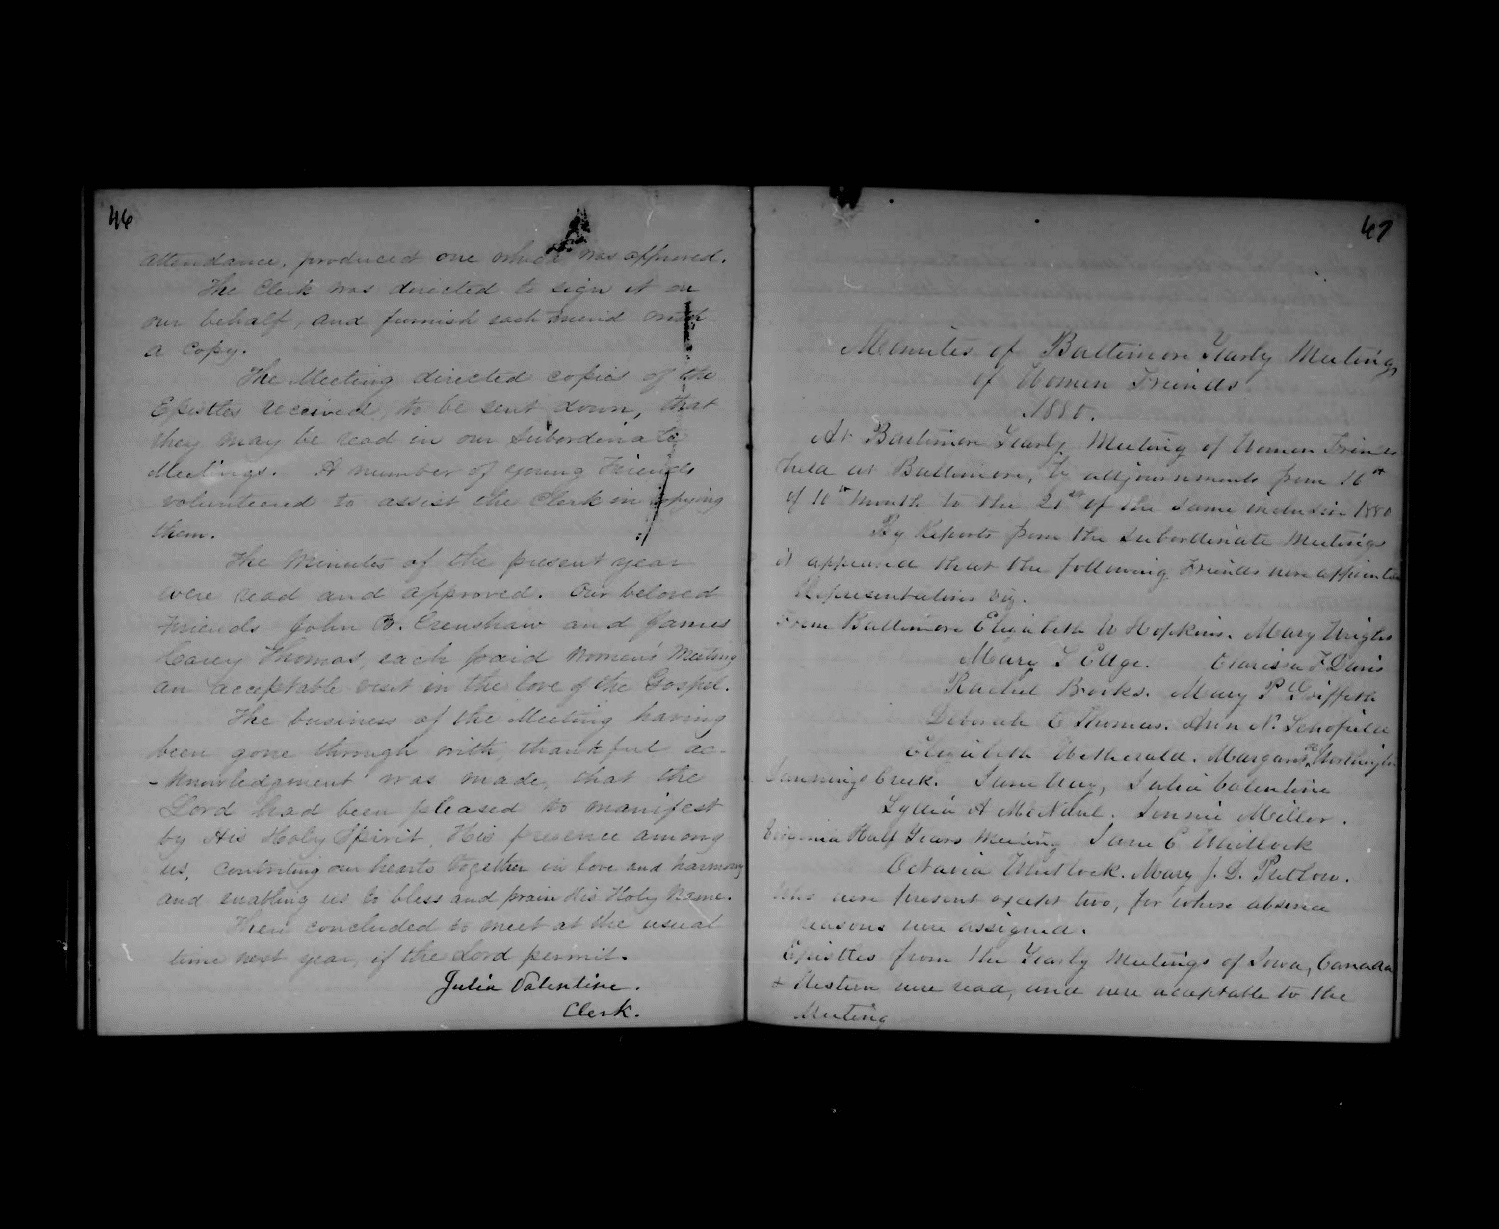 46
attendance, produced one which was approved.
The Clerk was directed to sign it on
our behalf, and furnish each friend with
a copy.
The Meeting directed copies of the
Epistles received, to be sent down, that
they may be read in our Subordinate
Meetings. A number of young Friends
volunteered to assist the Clerk in copying
them.
The Minutes of the present year
were read and approved. Our beloved
friends John B. Crenshaw and James
Carey Thomas, each paid Women's Meeting
an acceptable visit in the love of the Gospel.
The business of the Meeting having
been gone through with, thankful ac-
-knowledgment was made, that the
Lord had been pleased to manifest
by His Holy Spirit, His presence among
us, contriting our hearts together in love and harmony
and enabling us to bless and praise His Holy Name.
Then concluded to meet at the usual
time next year, if the Lord permit.
Julia Valentine.
Clerk.
47
Minutes of Baltimore Yearly Meeting
of Women Friends
1880.
At Baltimore Yearly Meeting of Women Friends
held at Baltimore, by adjournments from 16th
of 10th Month to the 21st of the same inclusive 1880
By Reports from the Subordinate Meetings
it appeared that the following Friends were appointed
Representatives viz.
From Baltimore Elizabeth W Hopkins. Mary Wright
Mary S Edge. Clarissa F Davis
Rachel Brooks. Mary P Griffith
Deborah C Thomas. Ann N. Schofield
Elizabeth Wetherald. Margaret Worthington
Dunnings Creek. Jane Way, Julia Valentine
Lydia A. Jennie Miller.
Virginia Half Years Meeting Jane C Whitlock
Octavia Whitlock. Mary J. D. Pretlow.
Who were present except two, for whose absence
reasons were assigned.
Epistles from the Yearly Meetings of Iowa, Canada
& Western were read, and were acceptable to the
Meeting